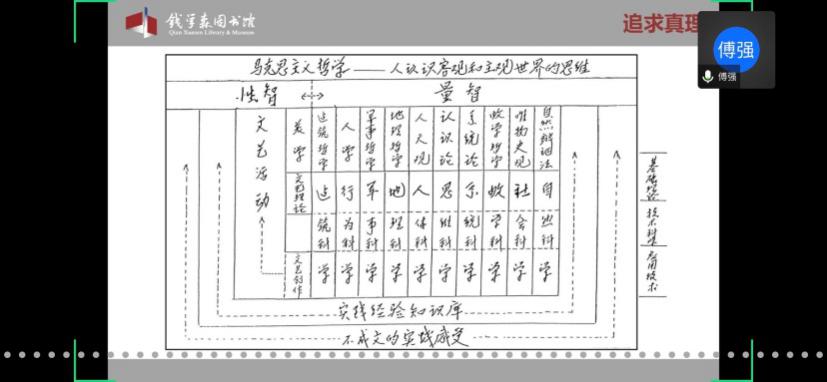 钱学森图书馆
Qian Xuesen Library & Museum
追求真理
傅强
傅强
马克思主义哲学——人认识客观和主观世界的思维
性智 ↔ 量智
文艺活动
美学
建筑哲学
人学
军事哲学
地理哲学
人天观
认识论
系统论
数学哲学
唯物史观
自然辩证法
文艺理论
建筑科学
行为科学
军事科学
地理科学
人体科学
思维科学
系统科学
数学科学
社会科学
自然科学
文艺创作
实践经验知识库
不成文的实践感受
基础理论
技术科学
应用技术